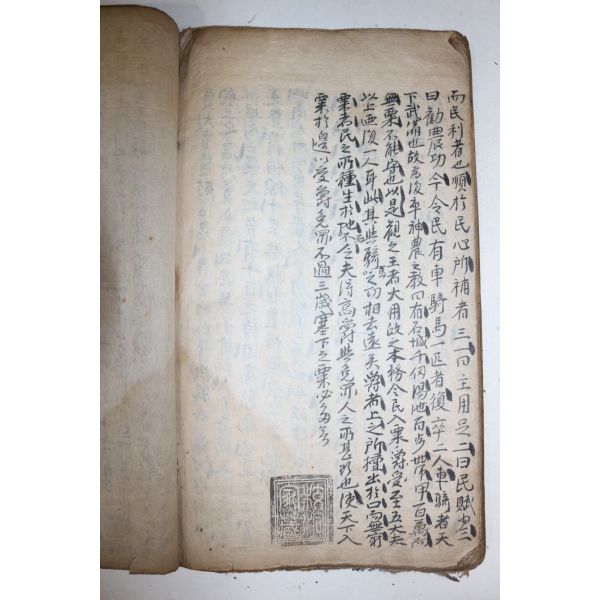 而民利者也順於民心所補者三一曰主用足二曰民賦少三
曰勸農功今令民有車騎馬一匹者復卒二人車騎者天
下武備也故為復卒神農之教曰有石城千仞湯池百步帶甲百萬而
無粟不能守也以是觀之王者大用政之本務令民入粟爵受至五大夫
以上復一人耳此其與騎馬之功相去遠矣爵者上之所擅出於口而無窮
粟者民之所種生於地而不乏夫得高爵與免罪人之所甚欲也使天下入
粟於邊以受爵免罪不過三歲塞下之粟必多矣
家藏